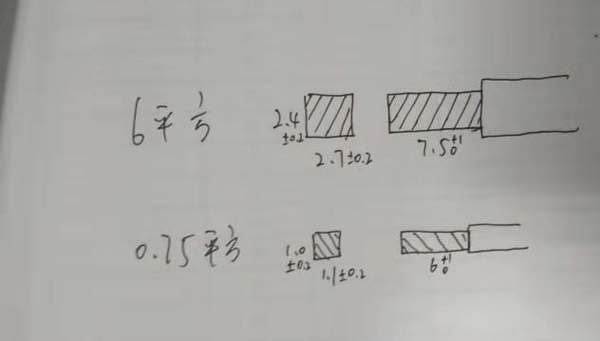 6平方
2.4
±0.2
2.7±0.2
7.5 +1 0
0.75平方
1.0
±0.2
1.1±0.2
6 +1 0